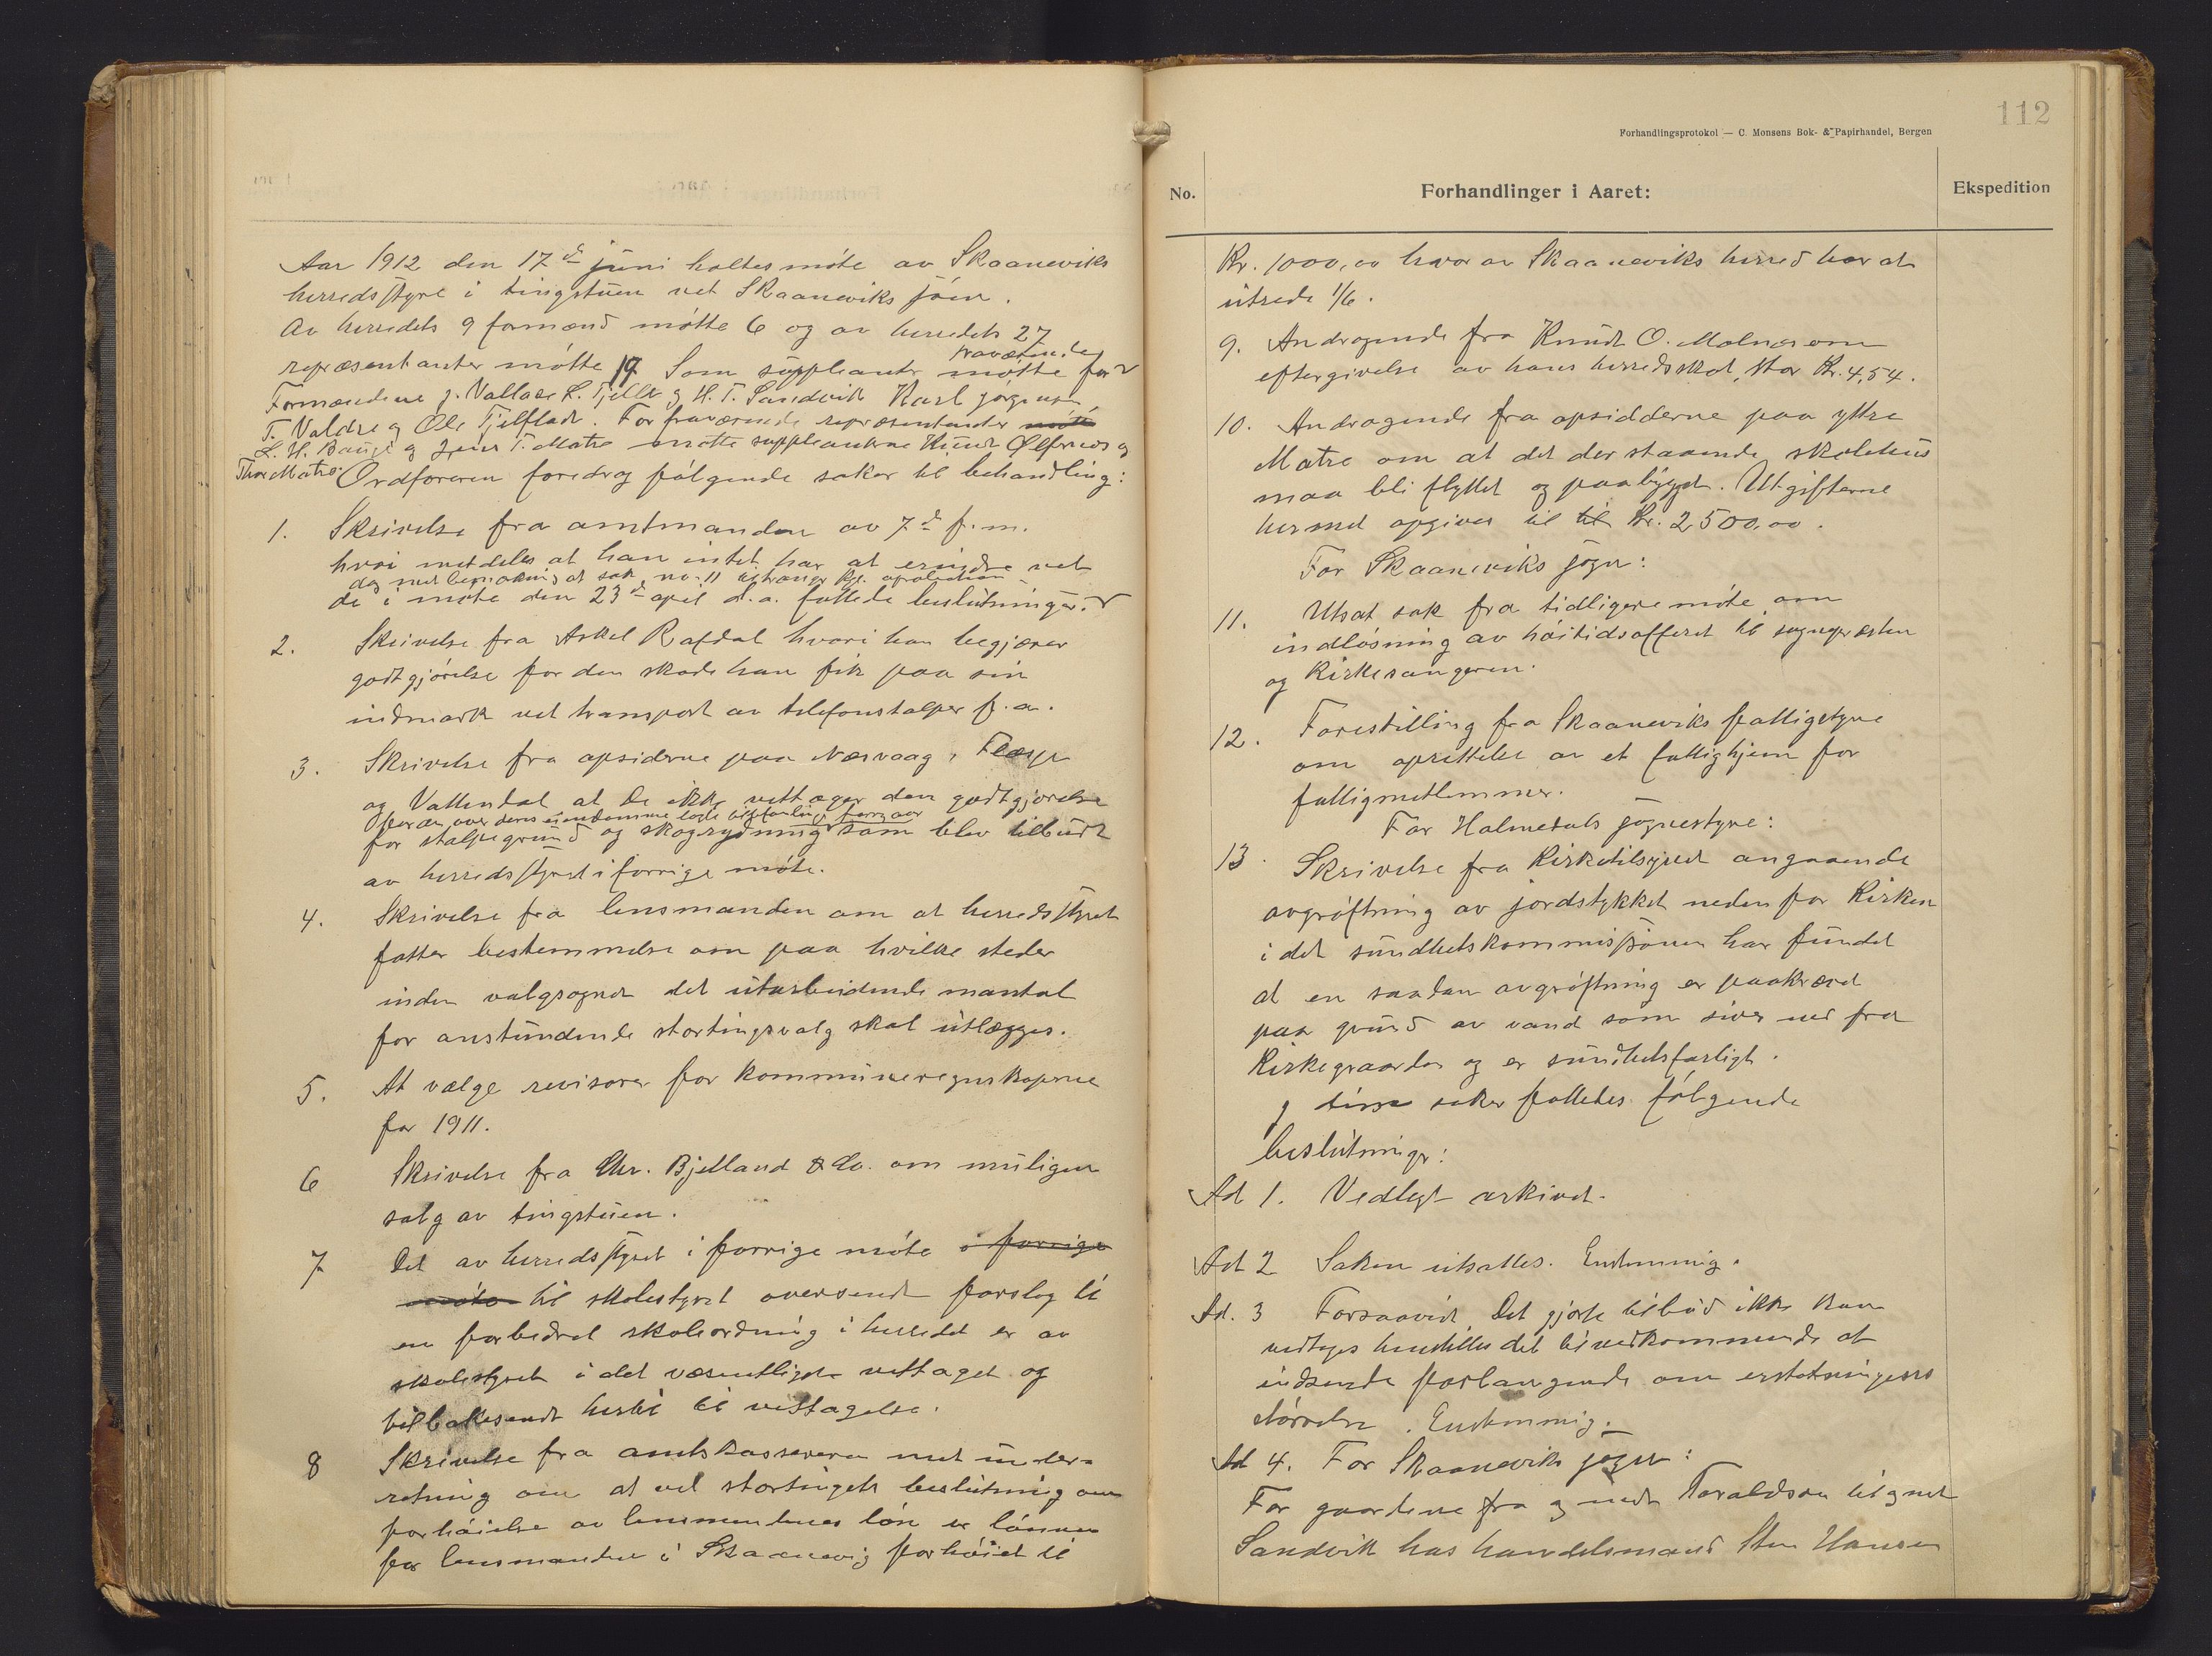 Aar 1912 den 17de juni holtes möte av Skaaneviks
herredsstyre i tingstuen vet Skaaneviks sjöen.
Av herredets 9 formænd mötte 6 og av herredets 27
repræsentanter mötte 19 Som suppleanter mötte for
fraværende
Formændene J. Vallaer L. Fjellt og H. T. Sandvik Karl Jørgensen,
T. Valdre og Ole Fjelflaat. For fraværende repræsentanter möte
L. H. Bauge og Jens T. Matre mötte suppleanterne Knut Ølfernes og
Thore Matre.
Ordføreren foredrog følgende saker til behandling:
1. Skrivelse fra amtmanden av 7de f.m.
hvori meddeles at han intet har at erindre vet
dog med bemærkning at sak no. 11 utkræver kgl. aprobation
de i möte den 23de april d.a. fattede beslutninger.
2. Skrivelse fra Askel Rafdal hvori han begjærer
godtgjörelse for den skade han fik paa sin
indmark vet transport av telefonstolper f.a.
3. Skrivelse fra opsiderne paa Nervaag, Flæse
og Vattendal at de ikke vettager den godtgjörelse
for den over deres eiendomme lagte telefonlinje forrige aar
for stolpegrund og skogrydning som blev tilbudt
av herredsstyret i forrige möte.
4. Skrivelse fra lensmanden om at herredsstyret
fatter bestemmelse om paa hvilke steder
inden valgsognet det utarbeidende mantal
for anstundende stortingsvalg skal utlægges.
5. At vælge revisorer for kommuneregnskaperne
for 1911.
6 Skrivelse fra Chr. Bjelland & Co. om muligen
salg av tingstuen.
7 Det av herredsstyret i forrige möte i forrige
möte til skolestyret oversendt forslag til
en forbedret skoleordning i herredet er av
skolestyret i det væsentligste vettaget og
tilbakesendt hertil til vettagelse.
8 Skrivelse fra amtskassereren med under-
retning om at ved stortingets beslutning om
forhöielse av lensmændenes lön er lönnen
for lensmanden i Skaanevig forhöiet til
112
Forhandlingsprotokol — C. Monsens Bok- & Papirhandel, Bergen
No.
Forhandlinger i Aaret:
Ekspedition
Kr. 1000,00 hvorav Skaaneviks herred har at
utrede 1/6.
9. Andragende fra Knudt O. Molnes om
eftergivelse av hans herredsskat, stor Kr. 4,54.
10. Andragende fra opsidderne paa yttre
Matre om at det der staaende skolehus
maa bli flyttet og paabygget. Utgifterne
hermed opgives til til Kr. 2,500,00.
For Skaaneviks sogn:
11. Utsat sak fra tidligere möte om
indlösning av höitidsofferet til sognepresten
og kirkesangeren.
12. Forestilling fra Skaaneviks fattigstyre
om oprettelse av et fattighjem for
fattigmedlemmer.
For Holmedals sognestyre:
13. Skrivelse fra kirketilsynet angaaende
avgröftning av jordstykket neden for kirken
i det sundhetskommissionen har fundet
at en saadan avgröftning er paakrævet
paa grund av vand som siver ned fra
kirkegaarden og er sundhetsfarligt.
I disse saker fattedes fölgende
beslutninger:
Ad 1. Vedlegt arkivet.
Ad 2 Saken utsattes. Enstemmig.
Ad. 3 Forsaavidt det gjorte tilbud ikke kan
vedtages henstilles det til vedkommende at
indsende forlangende om erstatningens
störrelse. Enstemmig.
Ad 4. For Skaaneviks sogn:
For gaardene fra og med Toraldson til og med
Sandvik hos handelsmand Sten Hansen